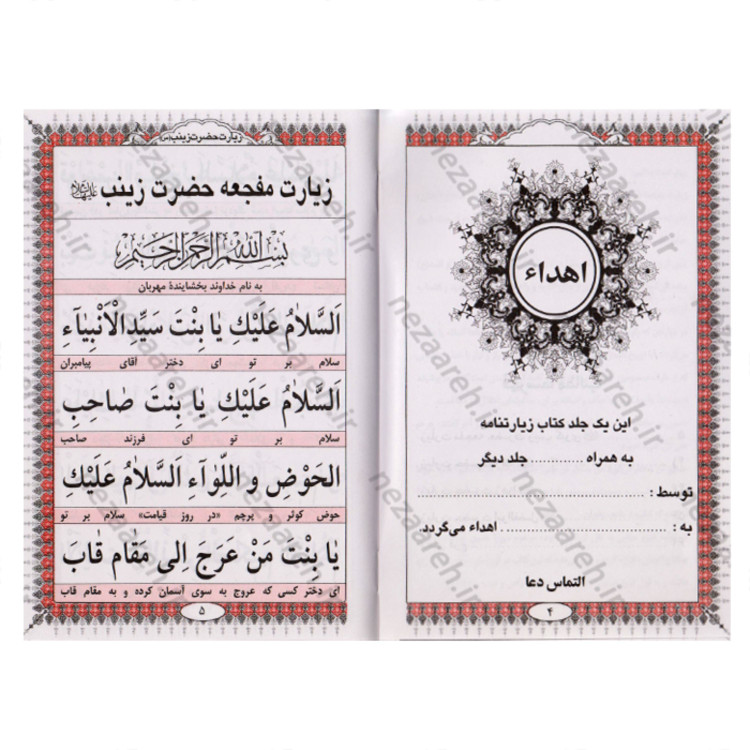 اهداء
این یک جلد کتاب زیارتنامه
به همراه ............ جلد دیگر
توسط : ........................................
به : ............................ اهداء می‌گردد.
التماس دعا
۴
زیارت حضرت زینب
زیارت مفجعه حضرت زینب علیها السلام
بسم الله الرحمن الرحیم
به نام خداوند بخشایندهٔ مهربان
اَلسَّلامُ عَلَيْكِ يا بِنْتَ سَيِّدِ الْاَنْبِيآءِ
سلام بر تو ای دختر آقای پیامبران
اَلسَّلامُ عَلَيْكِ يا بِنْتَ صاحِبِ
سلام بر تو ای فرزند صاحب
الحَوْضِ و اللِّوآءِ السَّلامُ عَلَيْكِ
حوض کوثر و پرچم «در روز قیامت» سلام بر تو
يا بِنْتَ مَنْ عَرَجَ اِلى مَقامِ قابَ
ای دختر کسی که عروج به سوی آسمان کرده و به مقام قاب
۵
nezaareh.ir
nezaareh.ir
nezaareh.ir
nezaareh.ir
nezaareh.ir
nezaareh.ir